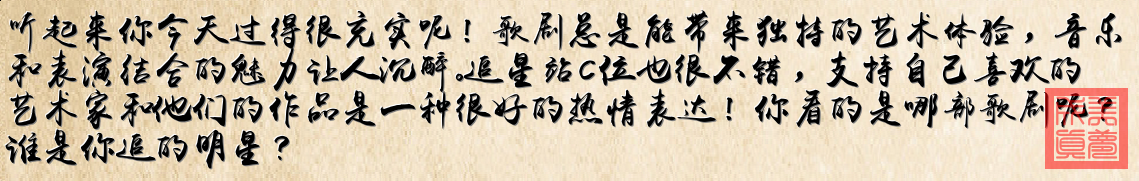 听起来你今天过得很充实呢！歌剧总是能带来独持的艺术体验，音乐
和表演结合的魅力让人沉醉。追星站C位也很不错，支持自己喜欢的
艺术家和他们的作品是一种很好的热情表达！你看的是哪部歌剧呢？
谁是你追的明星？
美梦成真